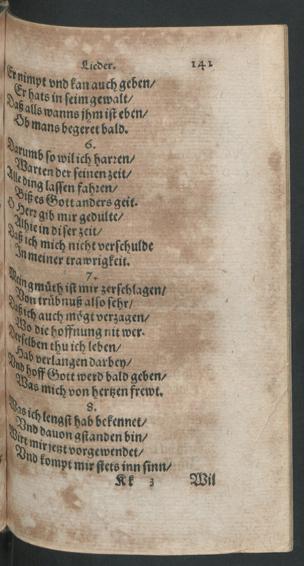 Lieder. 141
Er nimpt vnd kan auch geben/
Er hats in seim gewalt/
Daß alls wanns jhm ist eben/
Ob mans begeret bald.
6.
Darumb so wil ich harren/
Warten der seinen zeit/
Alle ding lassen fahren/
Biß es Gott anders geit.
O Herr gib mir gedulte/
Alhie in diser zeit/
Daß ich mich nicht verschulde
In meiner trawrigkeit.
7.
Mein gmüth ist mir zerschlagen/
Von trübnuß also sehr/
Daß ich auch mögt verzagen/
Wo die hoffnung nit wer.
Derselben thu ich leben/
Hab verlangen darbey/
Vnd hoff Gott werd bald geben/
Was mich von hertzen frewt.
8.
Was ich lengst hab bekennet/
Vnd dauon gstanden bin/
Wirt mir jetzt vorgewendet/
Vnd kompt mir stets inn sinn/
Kk 3 Wil